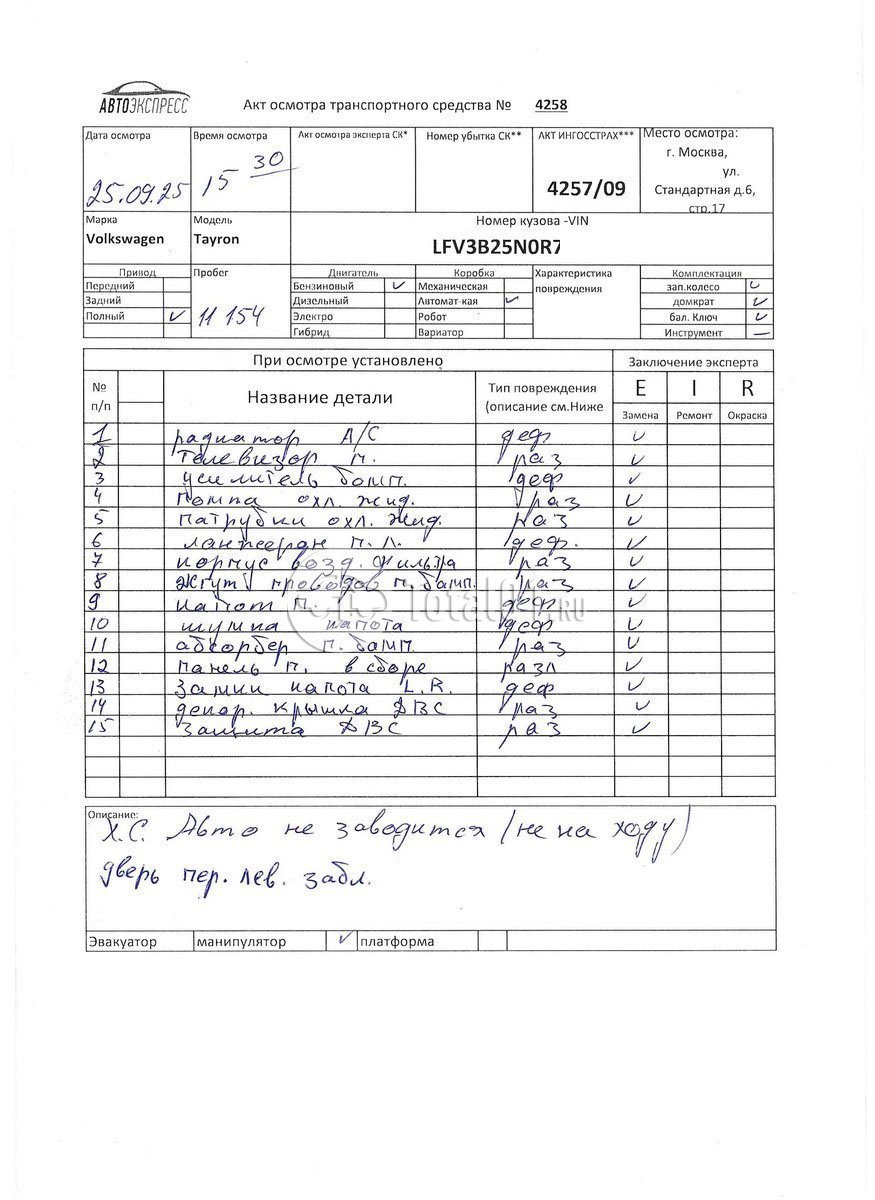 АВТОЭКСПРЕСС
Акт осмотра транспортного средства № 4258
Дата осмотра Время осмотра Акт осмотра эксперта СК* Номер убытка СК** АКТ ИНГОССТРАХ*** Место осмотра:
25.09.25 15 30 4257/09 г. Москва,
ул.
Стандартная д.6,
стр.17
Марка Модель Номер кузова -VIN
Volkswagen Tayron LFV3B25N0R7
Привод Пробег Двигатель Коробка Характеристика Комплектация
Передний Бензиновый ✓ Механическая повреждения зап.колесо ✓
Задний 11 154 Дизельный Автомат-кая ✓ домкрат ✓
Полный ✓ Электро Робот бал. Ключ ✓
Гибрид Вариатор Инструмент —
При осмотре установлено Заключение эксперта
№ п/п Название детали Тип повреждения (описание см.Ниже E I R
Замена Ремонт Окраска
1 радиатор A/C деф ✓
2 телевизор п. раз ✓
3 усилитель бамп. деф ✓
4 помпа охл. жид. раз ✓
5 патрубки охл. жид. раз ✓
6 лонжерон п. л. деф. ✓
7 корпус возд. фильтра раз ✓
8 жгут проводов п. бамп. раз ✓
9 капот п. деф ✓
10 шумка капота деф ✓
11 абсорбер п. бамп. раз ✓
12 панель п. в сборе разл ✓
13 замки капота L.R. деф ✓
14 декор. крышка ДВС раз ✓
15 защита ДВС раз ✓
TotalCar.RU
Описание:
Х.С. Авто не заводится (не на ходу)
дверь пер. лев. забл.
Эвакуатор манипулятор ✓ платформа